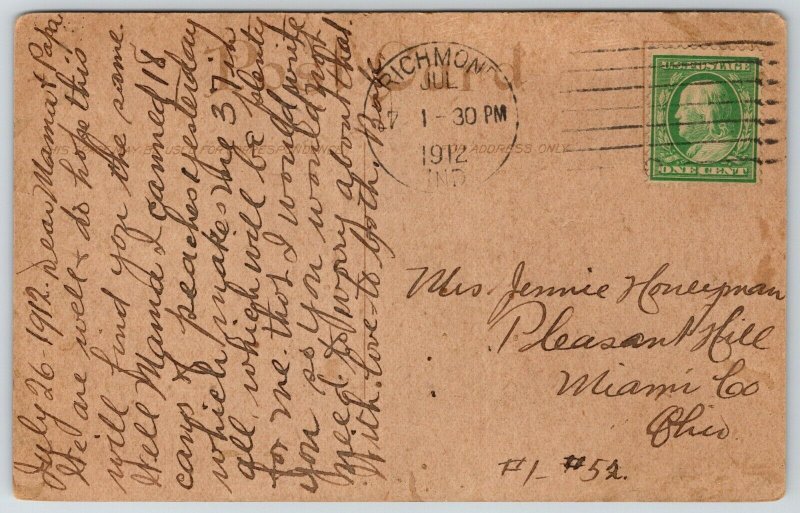 Post Card
RICHMOND
JUL
27 1-30 PM
1912
IND
U.S. POSTAGE
ONE CENT
THIS SPACE MAY BE USED FOR CORRESPONDENCE
FOR ADDRESS ONLY
July 26-1912. Dear Mama & Papa
We are well & do hope this
will find you the same.
Well Mama I canned 18
cans of peaches yesterday
which makes me 37 in
all, which will be plenty
for me. thot I would write
you so you would not
need to worry about that.
With love to both, 
Mrs. Jennie Honeyman
Pleasant Hill
Miami Co
Ohio
#1- #52.